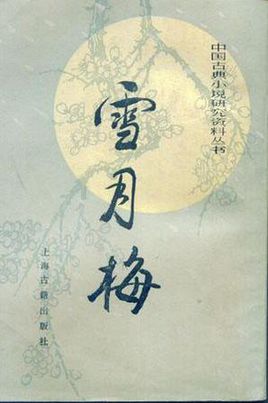 中国古典小说研究资料丛书
雪月梅
上海古籍出版社